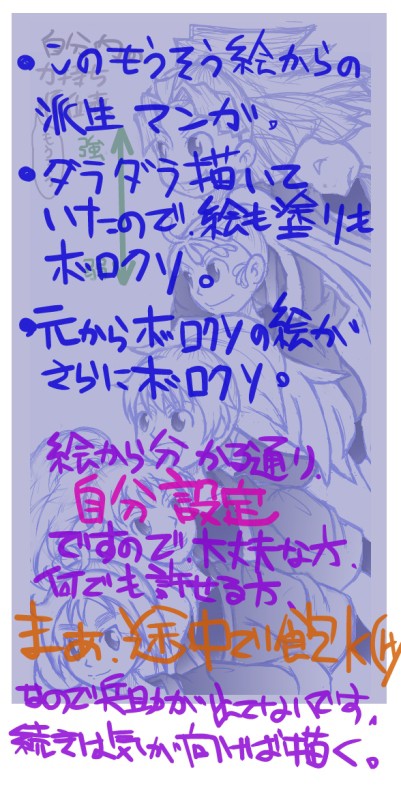 ・このもうそう絵からの
派生マンガ。
・ダラダラ描いて
いたので、絵も塗りも
ボロクソ。
・元からボロクソの絵が
さらにボロクソ。
絵から分かる通り、
自分設定
ですので、大丈夫な方、
何でも許せる方、
まぁ、途中で飽k(ry
なので兵助が出てないです。
続きは気が向けば描く。
強
弱